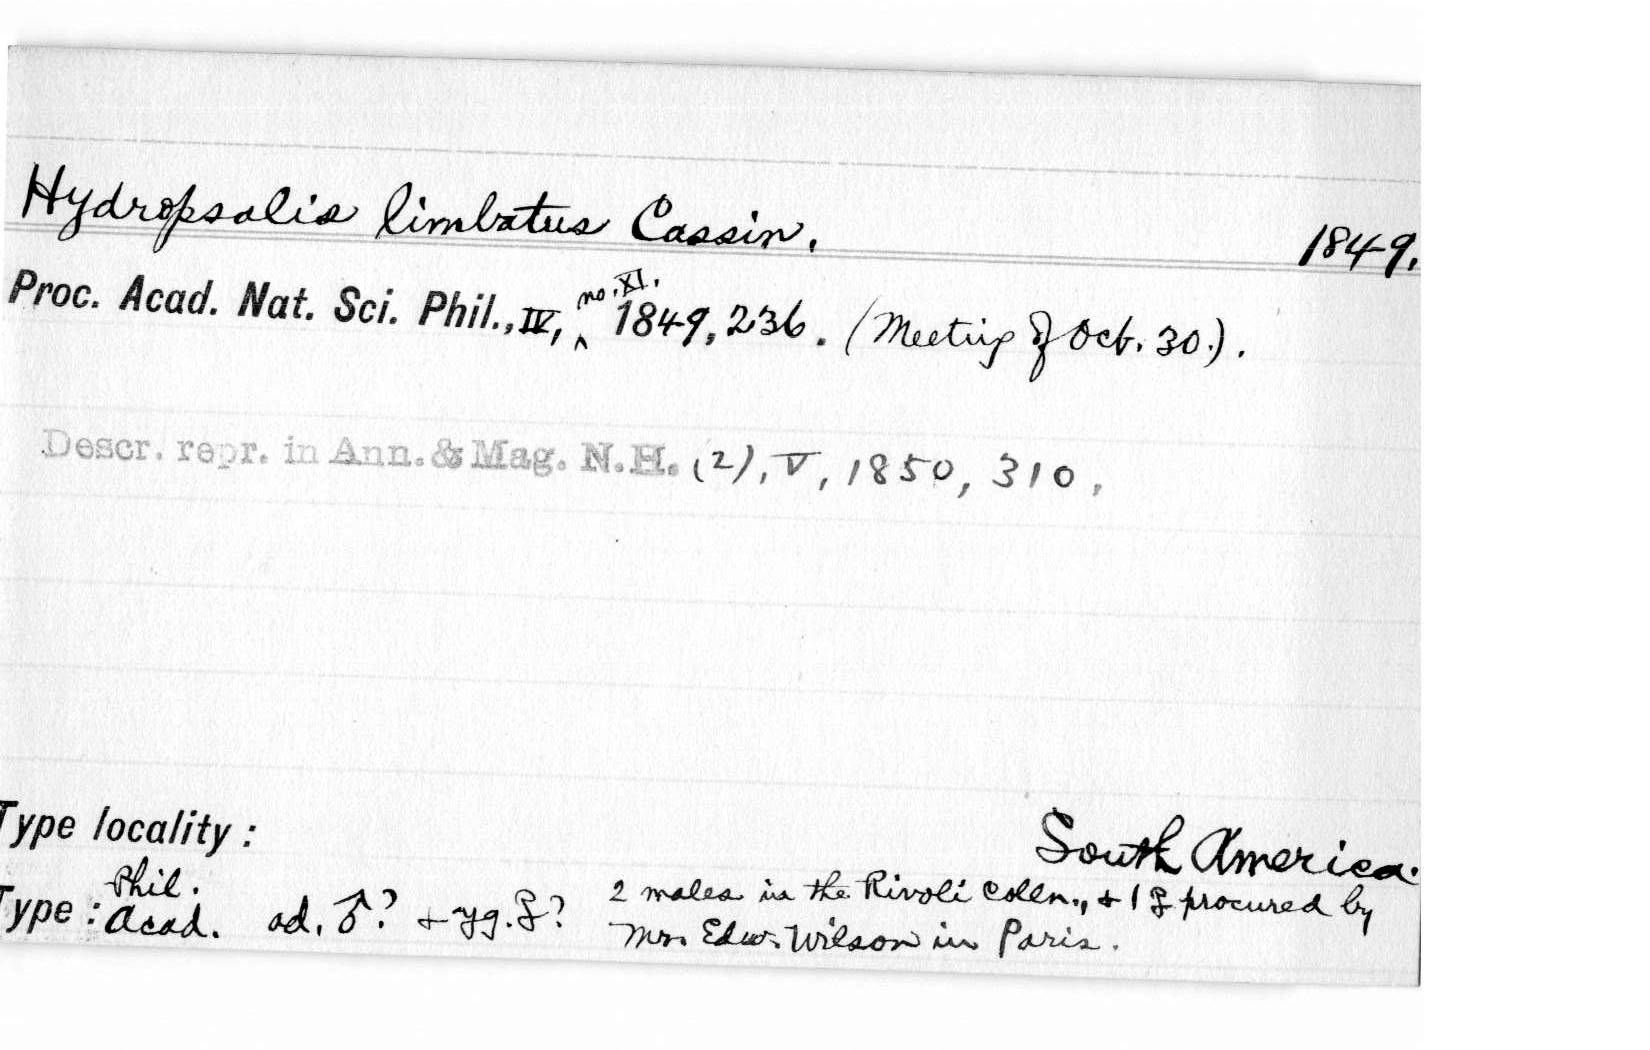 Hydropsalis limbatus Cassin. 1849.
Proc. Acad. Nat. Sci. Phil., IV, no. XI. 1849, 236. (Meeting of Oct. 30.).
Descr. repr. in Ann. & Mag. N.H. (2), V, 1850, 310.
Type locality: South America.
Type: Phil. Acad. ad. ♂? + yg. ♀? 2 males in the Rivoli Colln., + 1 ♀ procured by
Mr. Edw. Wilson in Paris.